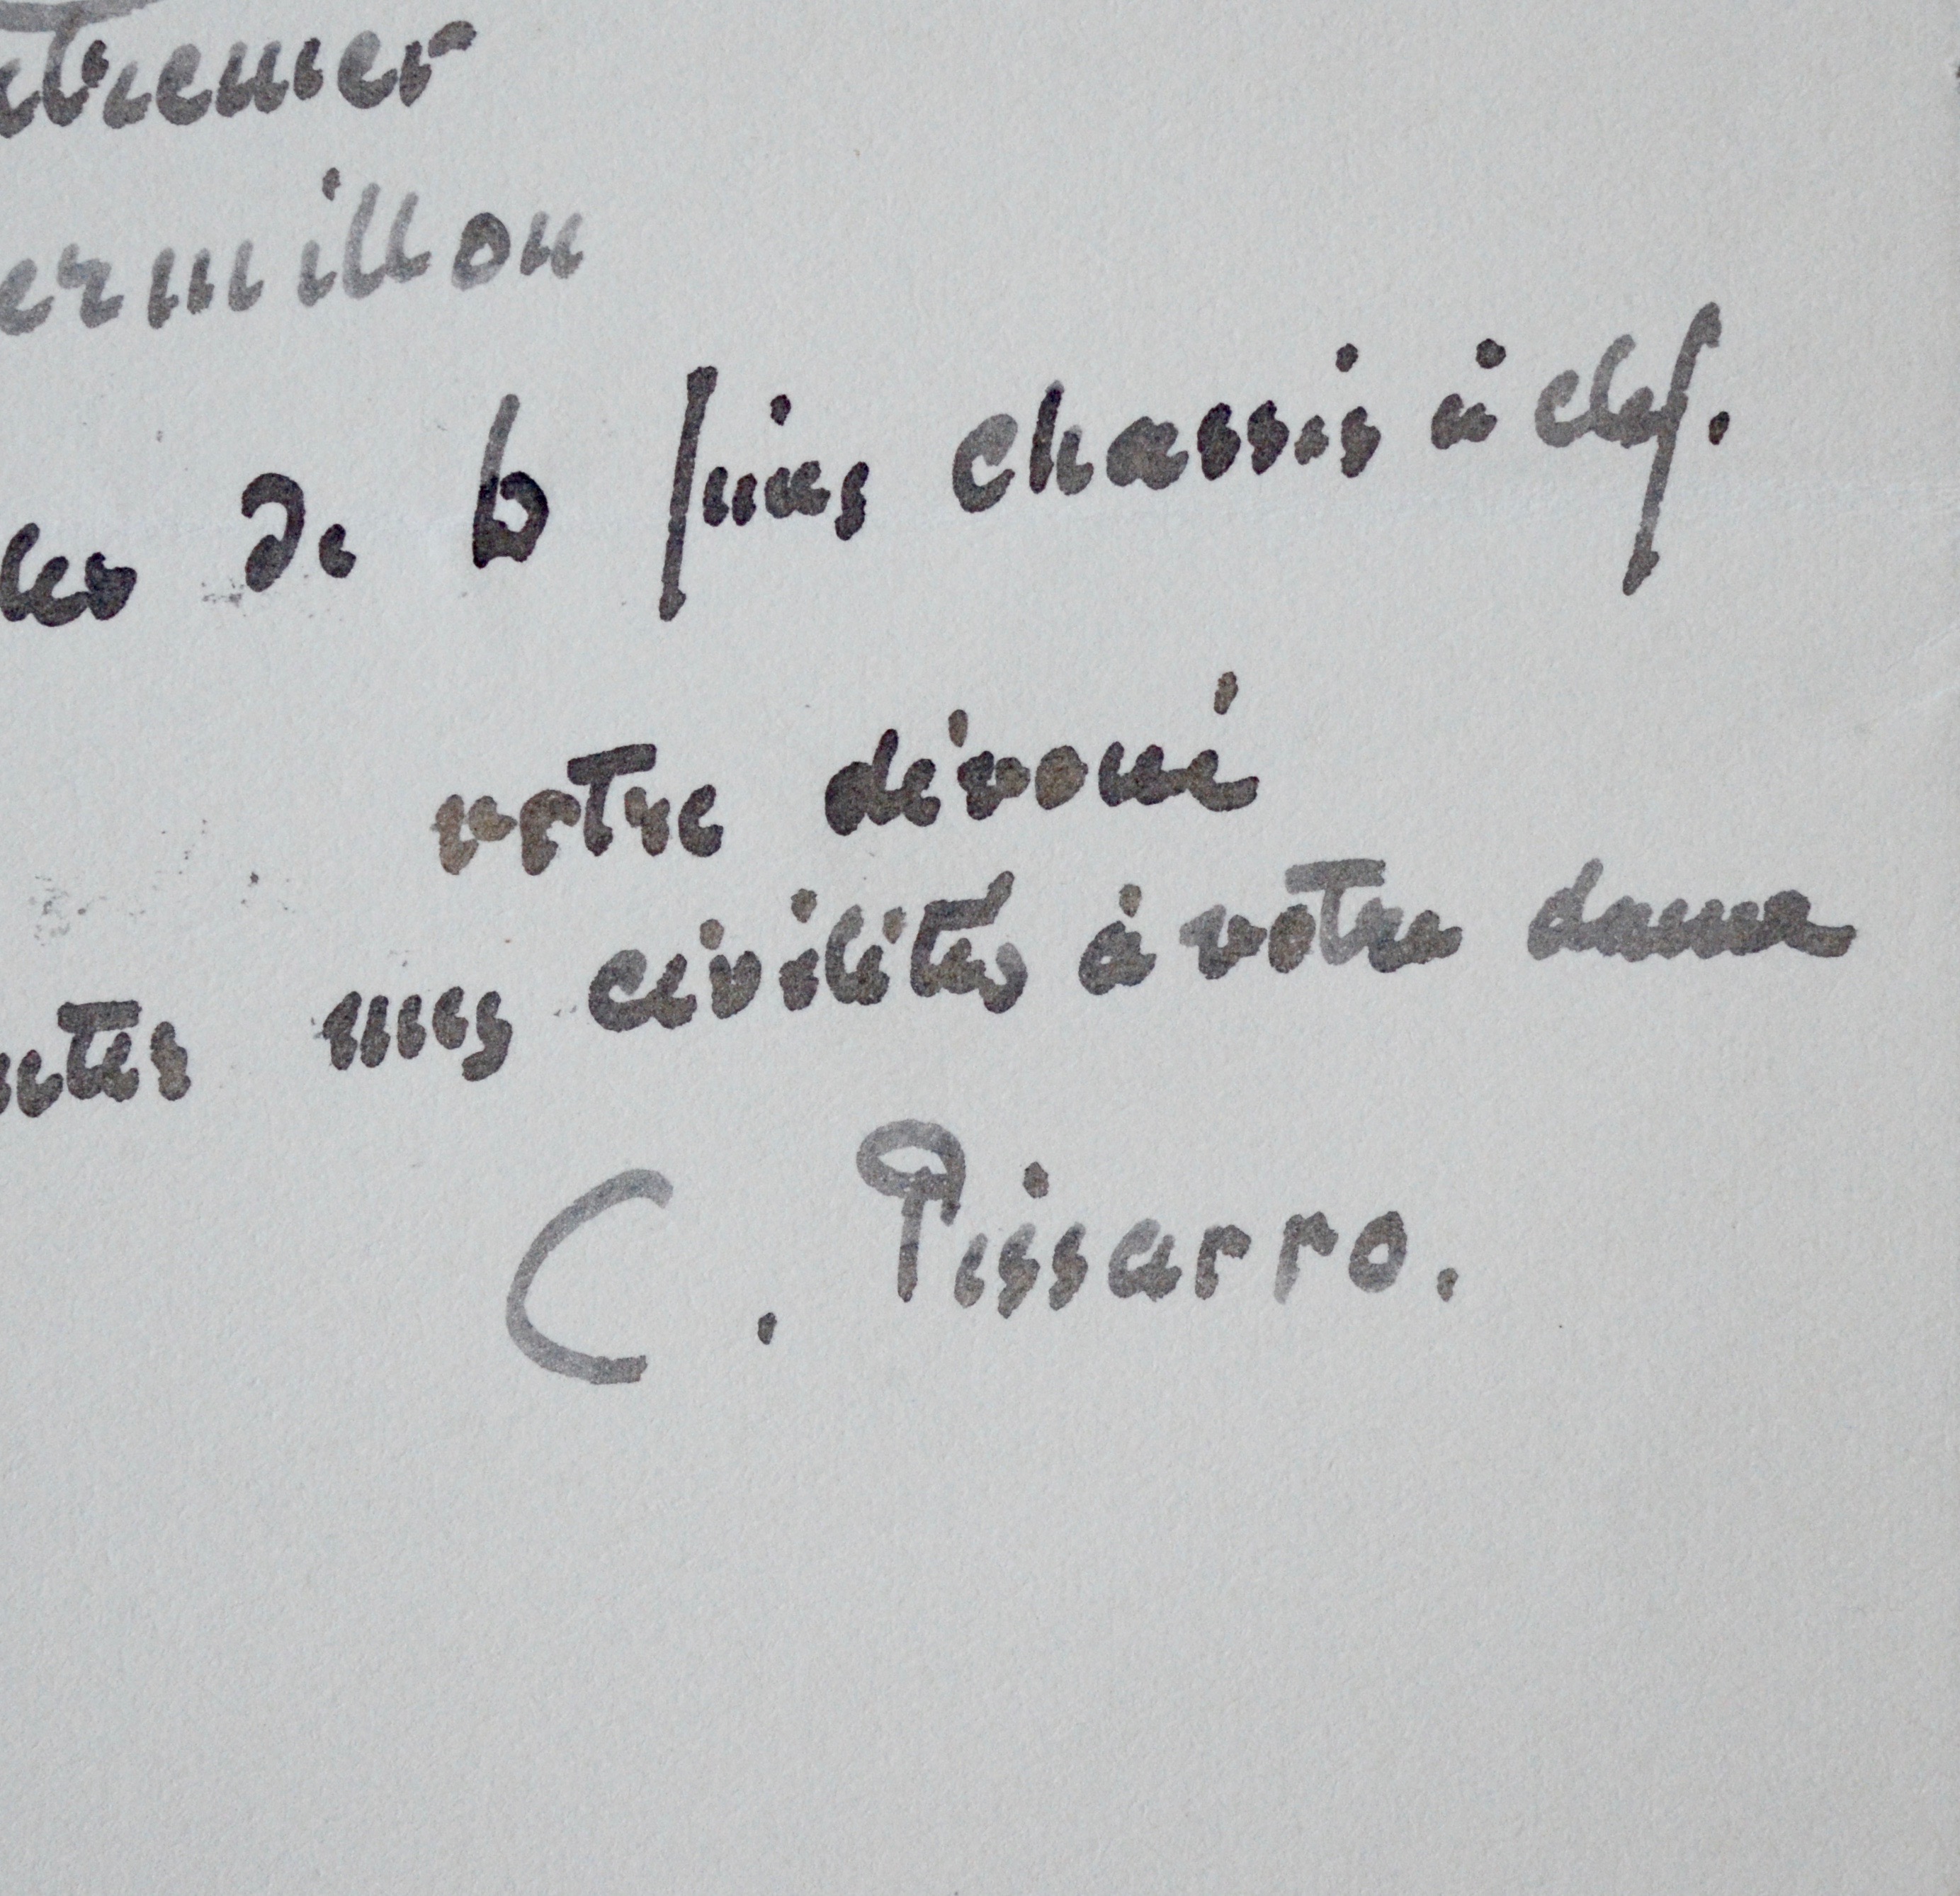 ermillon
de 6 fines chassis à clef.
votre dévoué
mes civilités à votre dame
C. Pissarro.